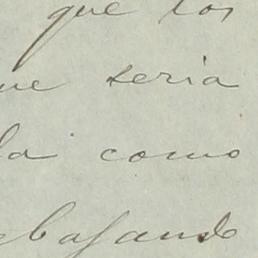 que los
ue seria
la como
bajando